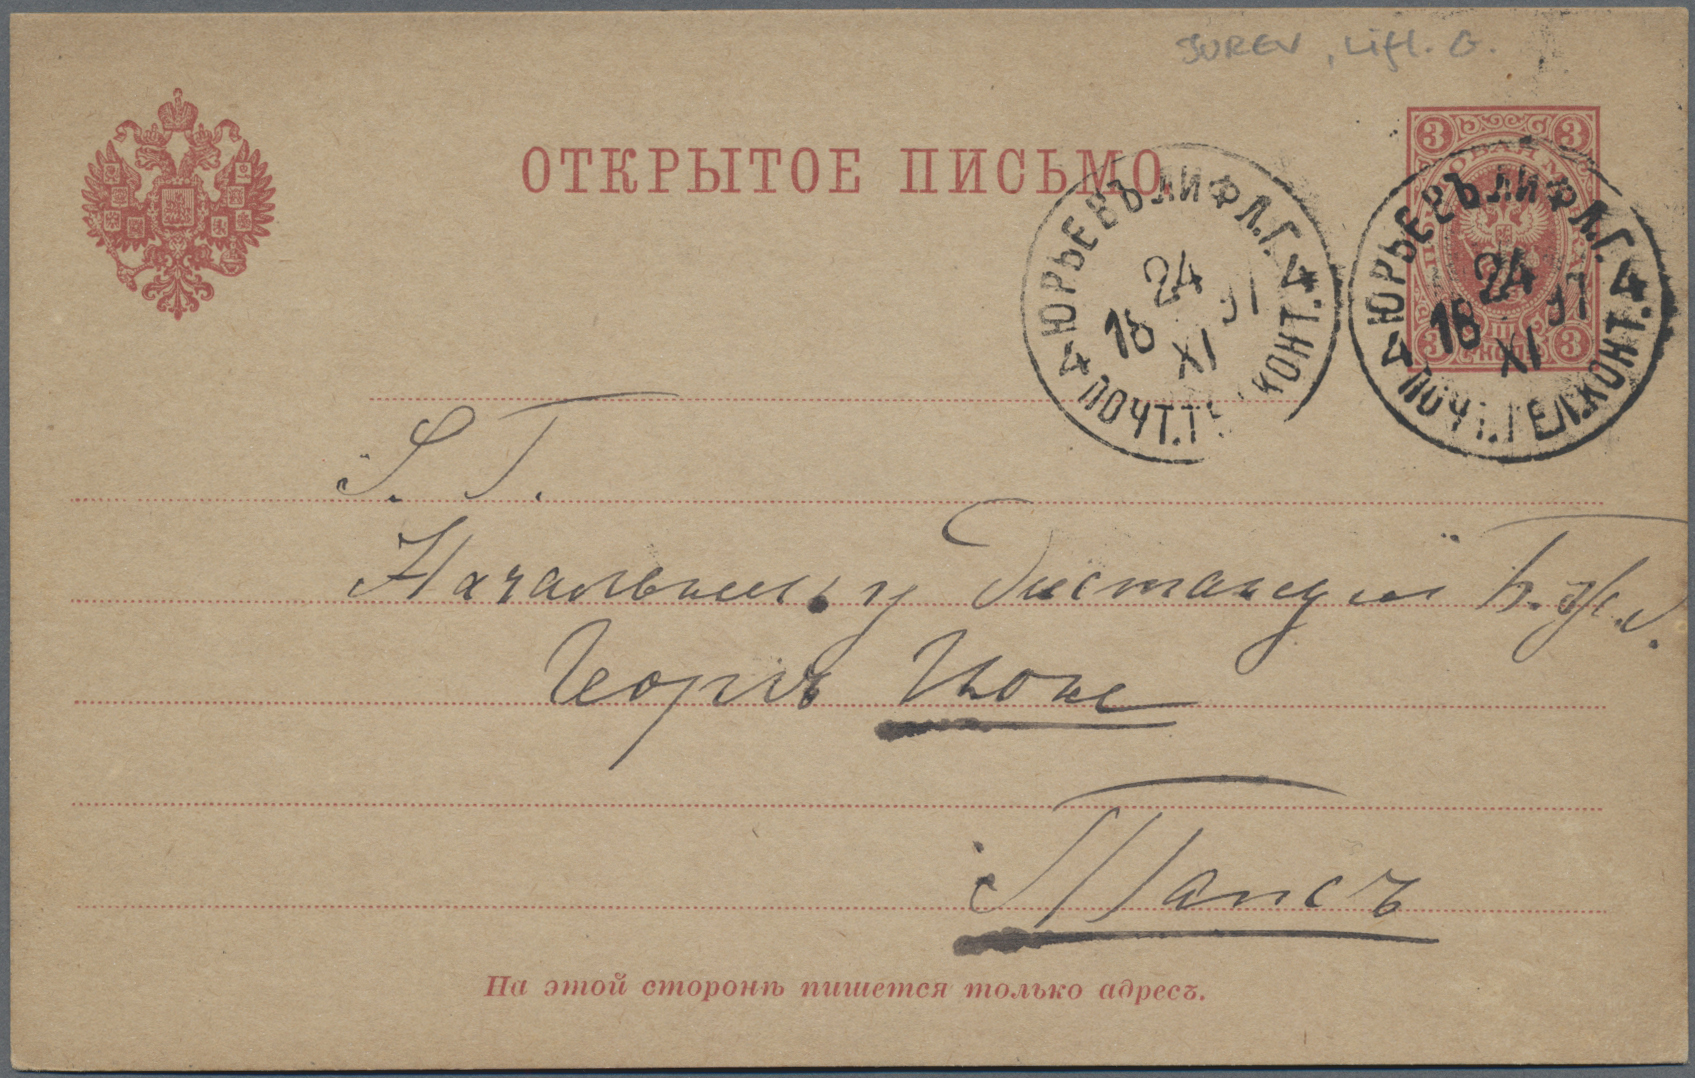 JUREV, Lifl. G.
ОТКРЫТОЕ ПИСЬМО.
3 3
3 3
ЮРЬЕВЪ ЛИФЛ.Г. 4
24
18 XI 97
4 ПОЧТ.ТЕЛ.КОНТ.
ЮРЬЕВЪ ЛИФЛ.Г. 4
24
18 XI 97
4 ПОЧТ.ТЕЛ.КОНТ.
S. T.
Начальнику Дистанции Б. ж. д.
Георгъ
Тапсъ
На этой сторонѣ пишется только адресъ.